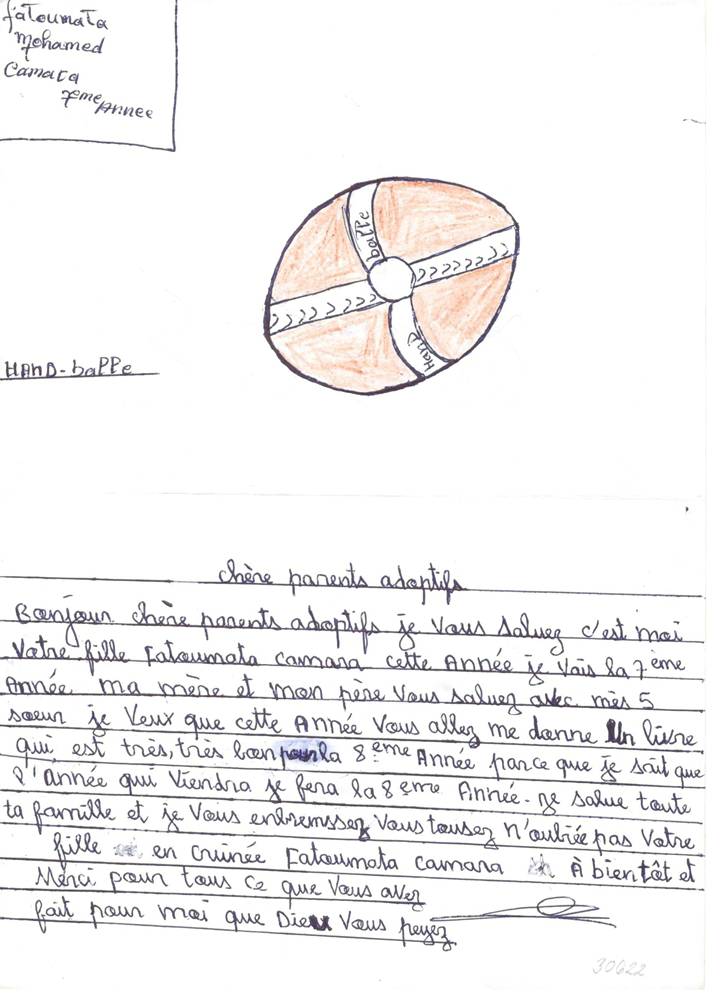 fatoumata
Mohamed
Camara
7eme Annee
baPPe
HanD
HAnD-baPPe
chère parents adoptifs
Boonjour chère parents adoptifs je vous saluez c'est moi
Votre fille Fatoumata camara cette Année je vais la 7ème
Année ma mère et mon père vous saluez avec mès 5
soeur je veux que cette Année vous allez me donne un livre
qui est très, très boon pour la 8eme Année parce que je sait que
l'année qui viendra je fera la 8eme Année. Je salue toute
ta famille et je vous enbremssez vous tousez n'oubliée pas votre
fille en Guinée Fatoumata camara À bientôt et
Merci pour tous ce que vous avez
fait pour moi que Dieu vous peyez
30622